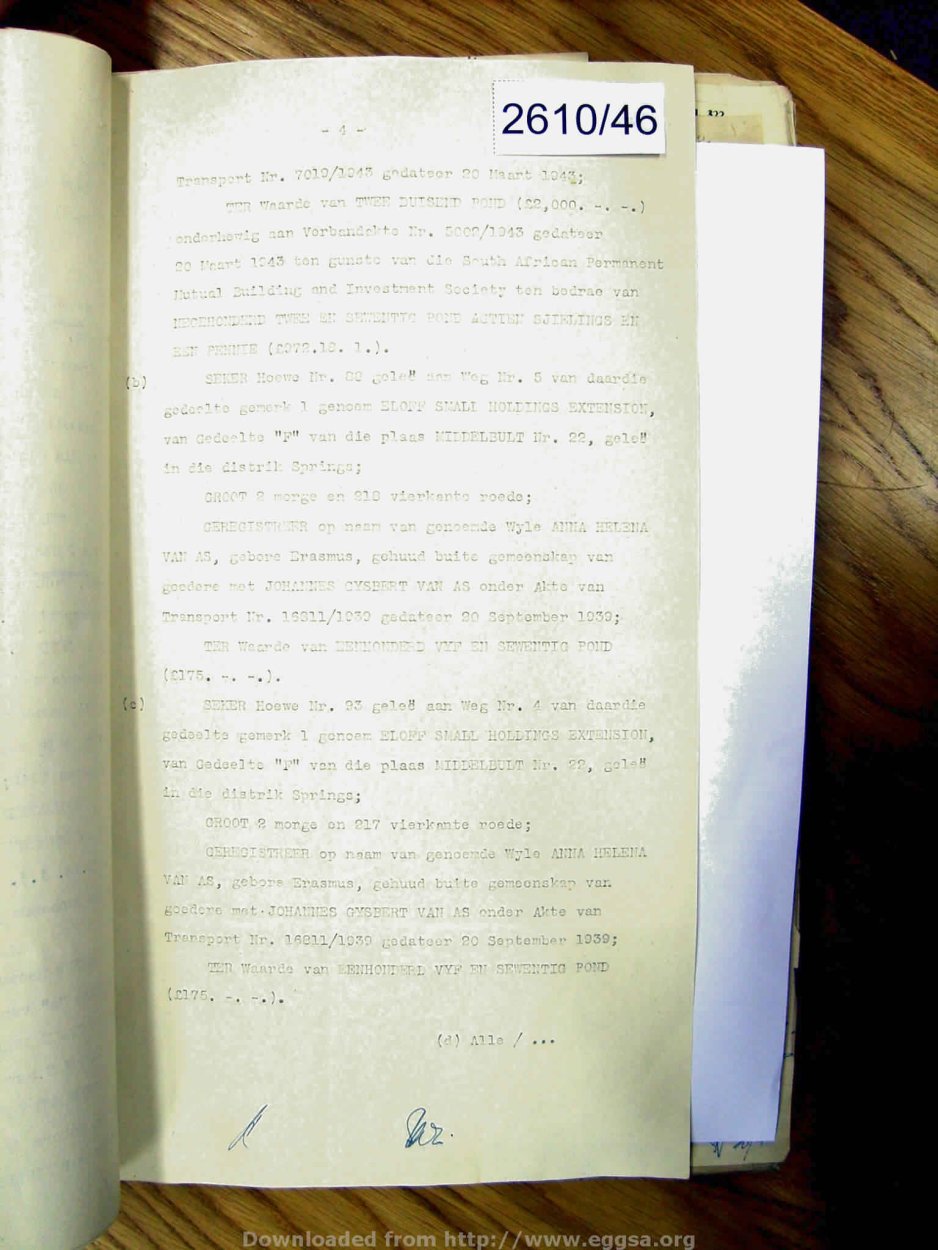 2610/46
- 4 -
Transport Nr. 7019/1943 gedateer 20 Maart 1943;
TER Waarde van TWEE DUISEND POND (£2,000. -. -.)
onderhewig aan Verbandakte Nr. gedateer
20 Maart 1943 ten gunste van die South African Permanent
Mutual Building and Investment Society ten bedrae van
NEGEHONDERD TWEE EN SEWENTIG POND AGTIEN SJIELINGS EN
EEN PENNIE (£972.18. 1.).
(b) SEKER Hoewe Nr. geleë aan Weg Nr. 5 van daardie
gedeelte gemerk 1 genoem ELOFF SMALL HOLDINGS EXTENSION,
van Gedeelte "F" van die plaas MIDDELBULT Nr. 22, geleë
in die distrik Springs;
GROOT 2 morge en 218 vierkante roede;
GEREGISTREER op naam van genoemde Wyle ANNA HELENA
VAN AS, gebore Erasmus, gehuud buite gemeenskap van
goedere met JOHANNES GYSBERT VAN AS onder Akte van
Transport Nr. 16811/1939 gedateer 20 September 1939;
TER Waarde van EENHONDERD VYF EN SEWENTIG POND
(£175. -. -.).
(c) SEKER Hoewe Nr. 93 geleë aan Weg Nr. 4 van daardie
gedeelte gemerk 1 genoem ELOFF SMALL HOLDINGS EXTENSION,
van Gedeelte "F" van die plaas MIDDELBULT Nr. 22, geleë
in die distrik Springs;
GROOT 2 morge en 217 vierkante roede;
GEREGISTREER op naam van genoemde Wyle ANNA HELENA
VAN AS, gebore Erasmus, gehuud buite gemeenskap van
goedere met JOHANNES GYSBERT VAN AS onder Akte van
Transport Nr. 16811/1939 gedateer 20 September 1939;
TER Waarde van EENHONDERD VYF EN SEWENTIG POND
(£175. -. -.).
(d) Alle / ...
Downloaded from http://www.eggsa.org